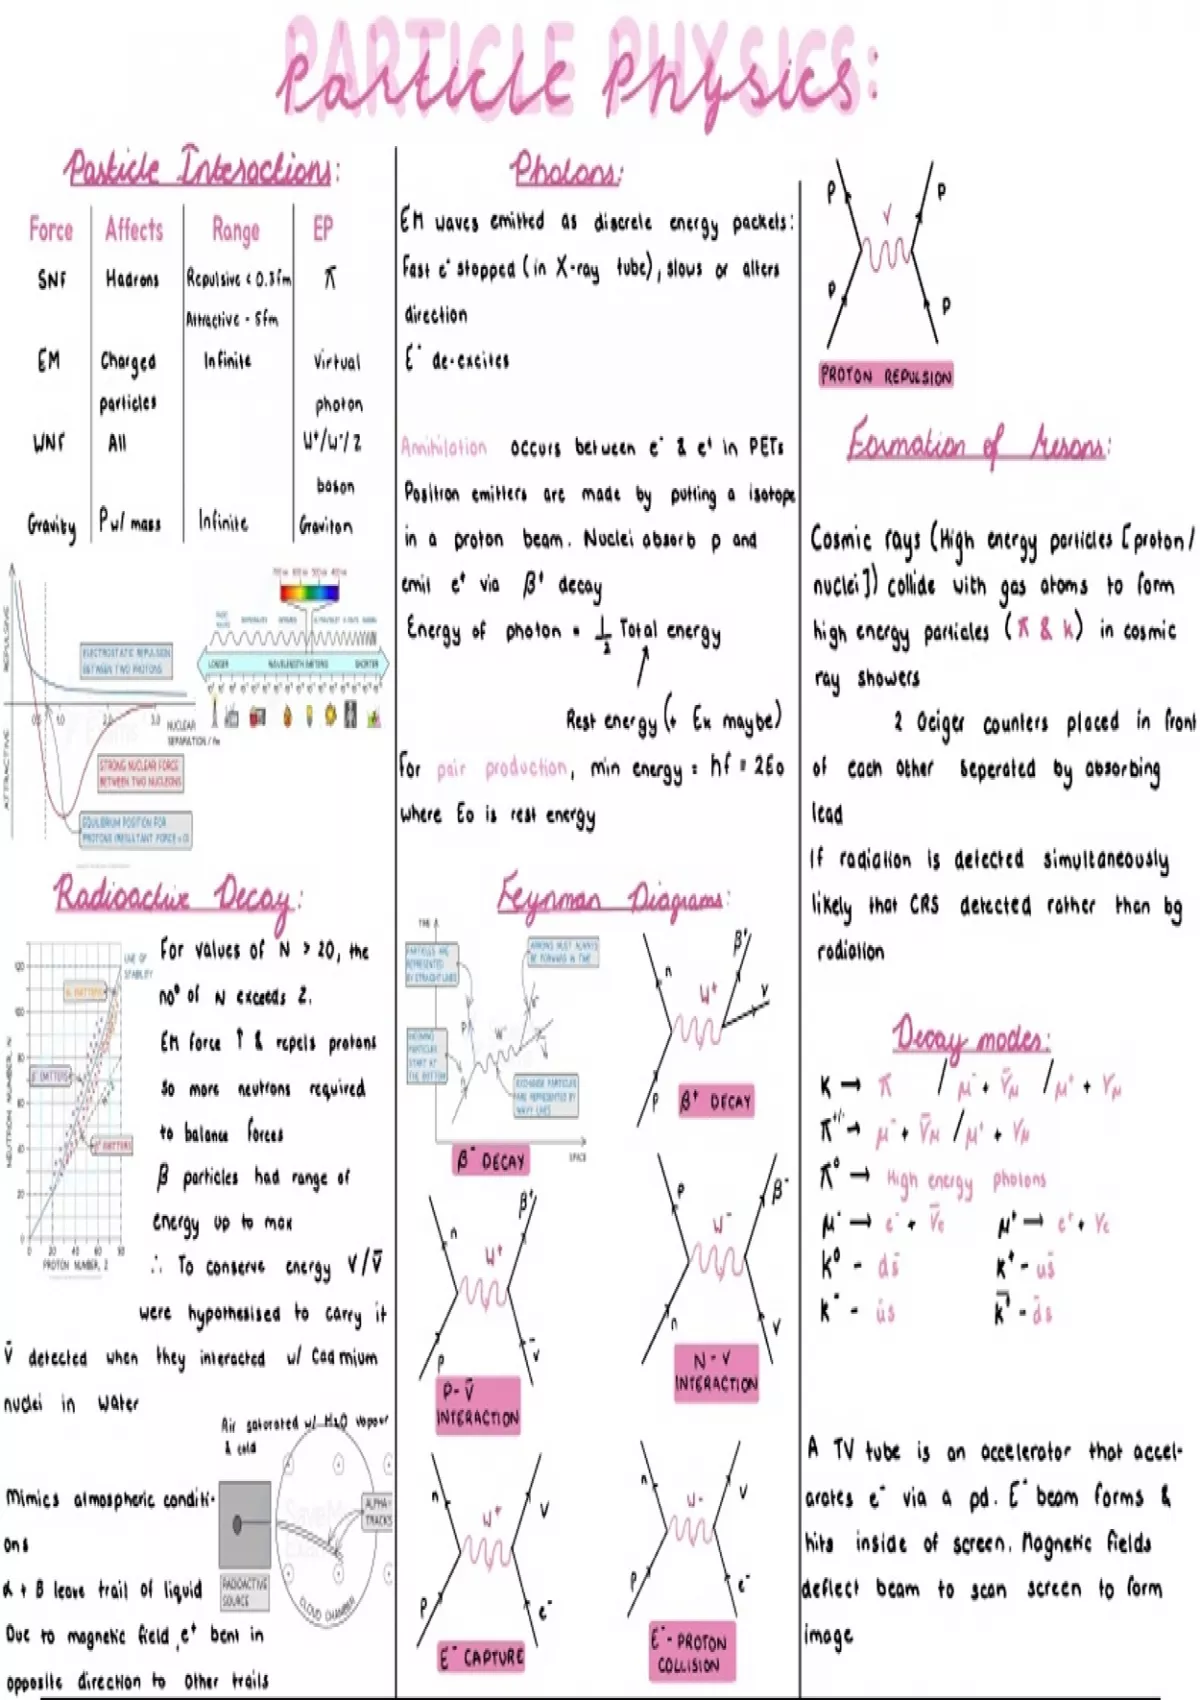 PARTICLE PHYSICS:
Particle Physics:
Particle Interactions:
Force Affects Range EP
SNF Hadrons Repulsive < 0.5fm π
Attractive - 5fm
EM Charged Infinite Virtual
particles photon
WNF All W⁺/W⁻/Z
boson
Gravity P w/ mass Infinite Graviton
REPULSIVE
ATTRACTIVE
ELECTROSTATIC REPULSION
BETWEEN TWO PROTONS
0.5 1.0 2.0 3.0
NUCLEAR
SEPARATION / fm
STRONG NUCLEAR FORCE
BETWEEN TWO NUCLEONS
EQUILIBRIUM POSITION FOR
PROTONS (RESULTANT FORCE = 0)
LONGER WAVELENGTH (METERS) SHORTER
Radioactive Decay:
LINE OF
STABILITY
α EMITTERS
β⁻ EMITTERS
β⁺ EMITTERS
NEUTRON NUMBER, N
120
100
80
60
40
20
0
0 20 40 60 80
PROTON NUMBER, Z
For values of N > 20, the
noº of N exceeds Z.
EM force ↑ & repels protons
so more neutrons required
to balance forces
β particles had range of
energy up to max
∴ To conserve energy V/V̄
were hypothesised to carry it
V̄ detected when they interacted w/ Cadmium
nuclei in water
Air saturated w/ H₂O vapour
& cold
Mimics atmospheric conditi-
ons
α + β leave trail of liquid
Due to magnetic field, e⁺ bent in
opposite direction to other trails
ALPHA-
TRACKS
RADIOACTIVE
SOURCE
CLOUD CHAMBER
Photons:
EM waves emitted as discrete energy packets:
Fast e⁻ stopped (in X-ray tube), slows or alters
direction
E⁻ de-excites
Annihilation occurs between e⁻ & e⁺ in PETs
Positron emitters are made by putting a isotope
in a proton beam. Nuclei absorb p and
emit e⁺ via β⁺ decay
Energy of photon = 1/2 Total energy
Rest energy (+ Ek maybe)
For pair production, min energy = hf = 2Eo
where Eo is rest energy
Feynman Diagrams:
PARTICLES ARE
REPRESENTED
BY STRAIGHT LINES
ARROWS MUST ALWAYS
BE FORWARD IN TIME
INCOMING
PARTICLES
START AT
THE BOTTOM
EXCHANGE PARTICLES
ARE REPRESENTED BY
WAVY LINES
P W⁻
SPACE
β⁻ DECAY
n W⁺ β⁺ V
P
β⁺ DECAY
n W⁺ β⁺
P V̄
P-V̄
INTERACTION
P W⁻ β⁻
n V
N-V
INTERACTION
n W⁺ V
P e⁻
E⁻ CAPTURE
n W- V
P e⁻
E⁻-PROTON
COLLISION
P P
P P
PROTON REPULSION
Formation of Mesons:
Cosmic rays (High energy particles [proton/
nuclei]) collide with gas atoms to form
high energy particles (π & K) in cosmic
ray showers
2 Geiger counters placed in front
of each other seperated by absorbing
lead
If radiation is detected simultaneously
likely that CRS detected rather than bg
radiation
Decay modes:
K → π / μ⁻ + V̄μ / μ⁺ + Vμ
π⁺/⁻ → μ⁻ + V̄μ / μ⁺ + Vμ
π⁰ → High energy photons
μ⁻ → e⁻ + V̄e μ⁺ → e⁺ + Ve
K⁰ - ds̄ K⁺ - us̄
K⁻ - ūs K̄⁰ - d̄s
A TV tube is an accelerator that accel-
arates e⁻ via a pd. E⁻ beam forms &
hits inside of screen. Magnetic fields
deflect beam to scan screen to form
image